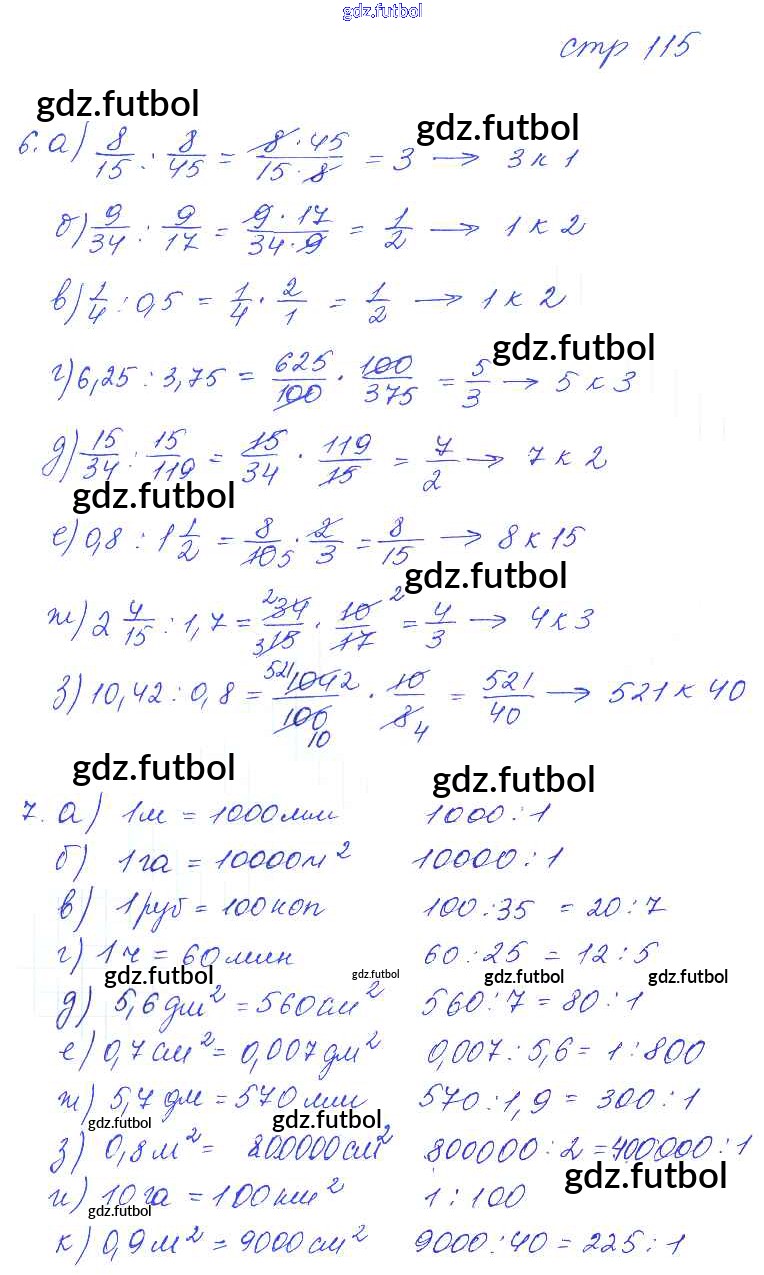 gdz.futbol
стр 115
gdz.futbol
gdz.futbol
6. а) 8/15 : 8/45 = 8·45/15·8 = 3 → 3 к 1
б) 9/34 : 9/17 = 9·17/34·9 = 1/2 → 1 к 2
в) 1/4 : 0,5 = 1/4 · 2/1 = 1/2 → 1 к 2
gdz.futbol
г) 6,25 : 3,75 = 625/100 · 100/375 = 5/3 → 5 к 3
д) 15/34 : 15/119 = 15/34 · 119/15 = 7/2 → 7 к 2
gdz.futbol
е) 0,8 : 1 1/2 = 8/10 5 · 2/3 = 8/15 → 8 к 15
gdz.futbol
ж) 2 4/15 : 1,7 = 2 34/3 15 · 10 2/17 = 4/3 → 4 к 3
з) 10,42 : 0,8 = 521 1042/100 10 · 10/8 4 = 521/40 → 521 к 40
gdz.futbol
gdz.futbol
7. а) 1м = 1000мм 1000 : 1
б) 1га = 10000м² 10000 : 1
в) 1руб = 100коп 100 : 35 = 20 : 7
г) 1ч = 60мин 60 : 25 = 12 : 5
gdz.futbol gdz.futbol gdz.futbol gdz.futbol
д) 5,6дм² = 560см² 560 : 7 = 80 : 1
е) 0,7см² = 0,007дм² 0,007 : 5,6 = 1 : 800
ж) 5,7дм = 570мм 570 : 1,9 = 300 : 1
gdz.futbol gdz.futbol
з) 0,8м² = 800000см² 800000 : 2 = 400000 : 1
gdz.futbol
и) 10га = 100км² 1 : 100
gdz.futbol
к) 0,9м² = 9000см² 9000 : 40 = 225 : 1